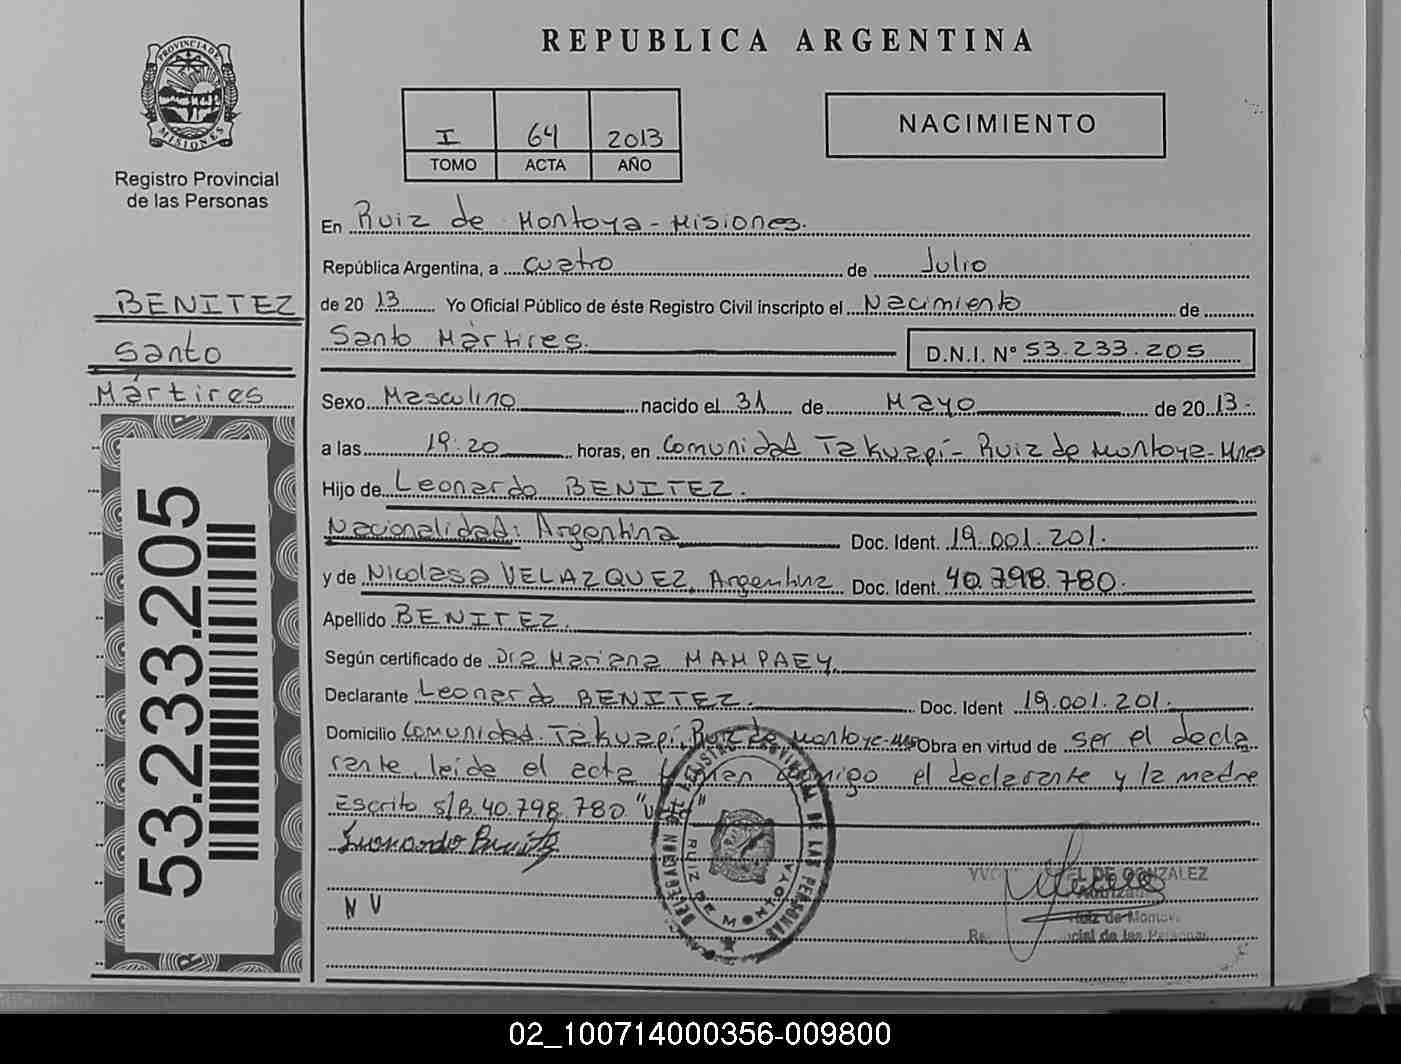 REPUBLICA ARGENTINA
PROVINCIA DE MISIONES
Registro Provincial
de las Personas
I 64 2013
TOMO ACTA AÑO
NACIMIENTO
BENITEZ
Santo
Mártires
53.233.205
En Ruiz de Montoya - Misiones.
República Argentina, a cuatro de Julio
de 20 13 Yo Oficial Público de éste Registro Civil inscripto el Nacimiento de
Santo Mártires. D.N.I. N° 53.233.205
Sexo Masculino nacido el 31 de Mayo de 2013.-
a las 19:20 horas, en Comunidad Takuapí - Ruiz de Montoya - Mnes
Hijo de Leonardo BENITEZ.
Nacionalidad: Argentina Doc. Ident. 19.001.201.
y de Nicolasa VELAZQUEZ, Argentina Doc. Ident. 40.798.780.
Apellido BENITEZ.
Según certificado de Dra Mariana MAMPAEY.
Declarante Leonardo BENITEZ. Doc. Ident 19.001.201.
Domicilio Comunidad Takuapí, Ruiz de Montoya - Mnes Obra en virtud de ser el decla
rante, leída el acta firman conmigo el declarante y la madre
Escrito s/B 40.798.780 "
Leonardo Benitez
N V
DELEGACION DEL REGISTRO PROVINCIAL DE LAS PERSONAS
RUIZ DE MONTOYA
EL DE GONZALEZ
Ruiz de Montoya
de las Personas
02_100714000356-009800